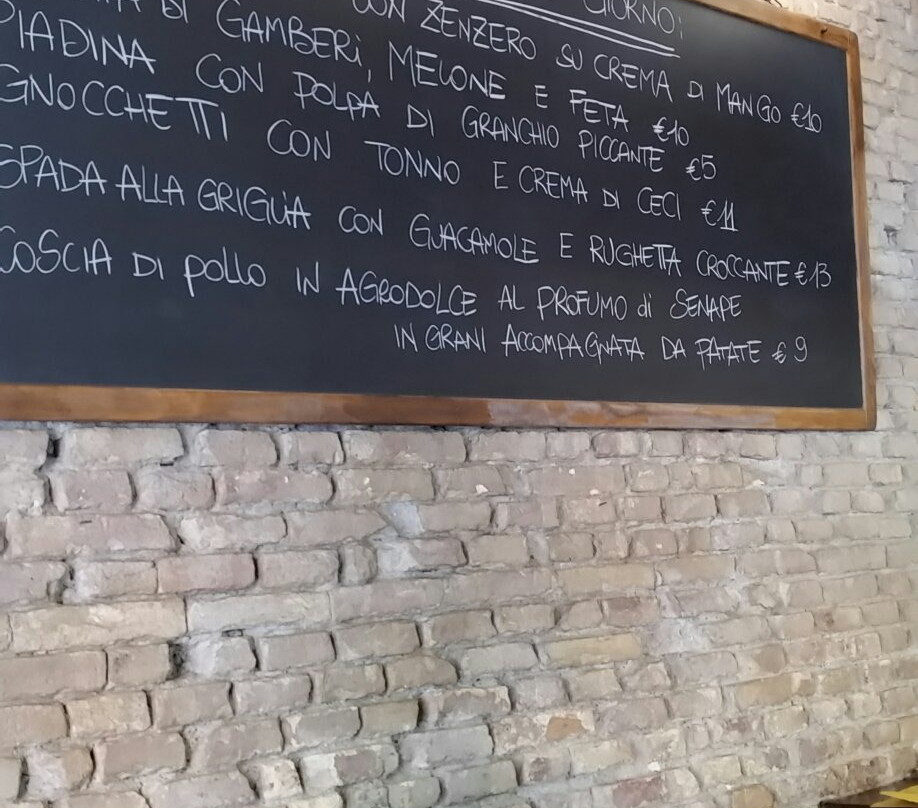 GIORNO:
CON ZENZERO SU CREMA DI MANGO €10
DI GAMBERi, MELONE E FETA €10
PIADINA CON POLPA DI GRANCHIO PICCANTE €5
GNOCCHETTI CON TONNO E CREMA DI CECI €11
SPADA ALLA GRIGLIA CON GUACAMOLE E RUGHETTA CROCCANTE €13
COSCIA DI pollo IN AGRODOLCE AL PROFUMO di SENAPE
IN GRANI ACCOMPAGNATA DA PATATE € 9